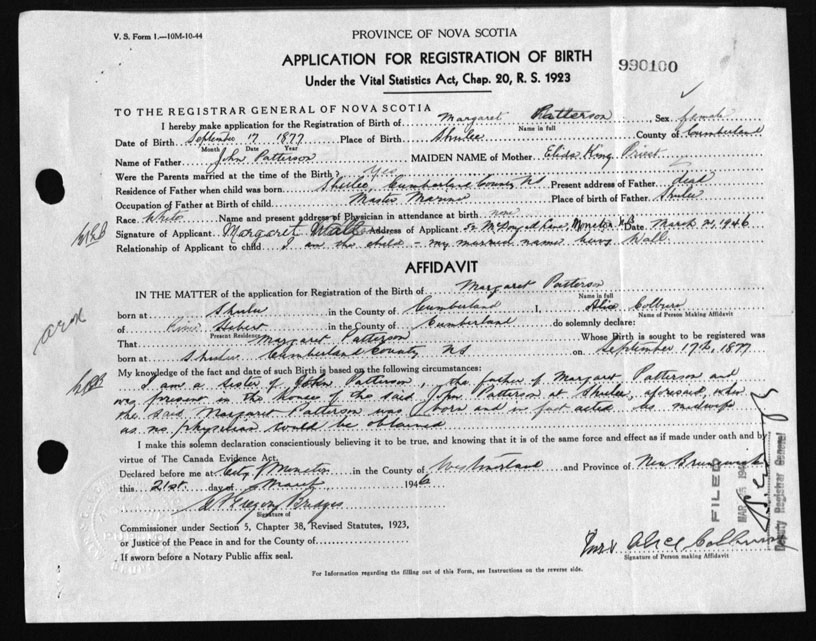 V. S. Form 1.—10M-10-44
PROVINCE OF NOVA SCOTIA
APPLICATION FOR REGISTRATION OF BIRTH
990100
Under the Vital Statistics Act, Chap. 20, R. S. 1923
TO THE REGISTRAR GENERAL OF NOVA SCOTIA
I hereby make application for the Registration of Birth of Margaret Patterson Sex female
Name in full
Date of Birth September 17 1877 Place of Birth Shulee County of Cumberland
Month Date Year
Name of Father John Patterson MAIDEN NAME of Mother Elida King
Were the Parents married at the time of the Birth? Yes
Residence of Father when child was born Shulee, Cumberland County NS Present address of Father dead
Occupation of Father at Birth of child Master Marine Place of birth of Father Shulee
Race White Name and present address of Physician in attendance at birth none
Signature of Applicant Margaret Wall Address of Applicant Moncton NB Date March 21, 1946
Relationship of Applicant to child I am the child - my married name being Wall
AFFIDAVIT
IN THE MATTER of the application for Registration of the Birth of Margaret Patterson
Name in full
born at Shulee in the County of Cumberland I, Alice
Name of Person Making Affidavit
of River Hebert in the County of Cumberland do solemnly declare:
Present Residence
That Margaret Patterson Whose Birth is sought to be registered was
born at Shulee Cumberland County NS on September 17th, 1877
My knowledge of the fact and date of such Birth is based on the following circumstances:
I am a sister of John Patterson, the father of Margaret Patterson and
was present in the house of the said John Patterson at Shulee, aforesaid, when
the said Margaret Patterson was born and in fact acted as midwife
as no physician could be obtained
I make this solemn declaration conscientiously believing it to be true, and knowing that it is of the same force and effect as if made under oath and by
virtue of The Canada Evidence Act.
Declared before me at City of Moncton in the County of Westmorland and Province of New Brunswick
this 21st. day of March 1946
Bridges
Signature of
Commissioner under Section 5, Chapter 38, Revised Statutes, 1923,
or Justice of the Peace in and for the County of
If sworn before a Notary Public affix seal.
Mrs. Alice
Signature of Person making Affidavit
FILED
MAR
Deputy Registrar General
For Information regarding the filling out of this Form, see Instructions on the reverse side.